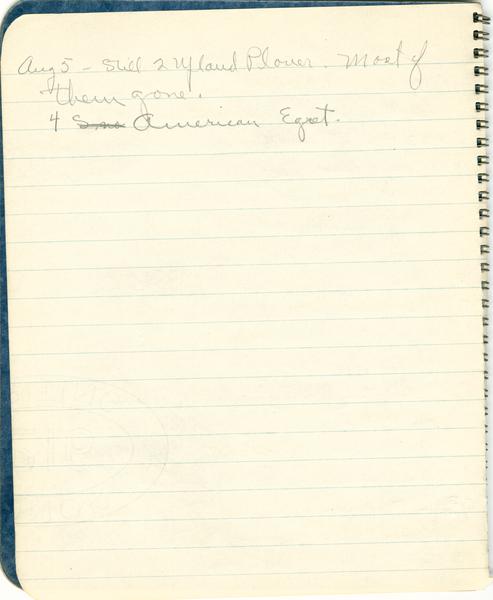 Aug 5 - Still 2 Upland Plover. Most of
them gone.
4 Sno American Egret.